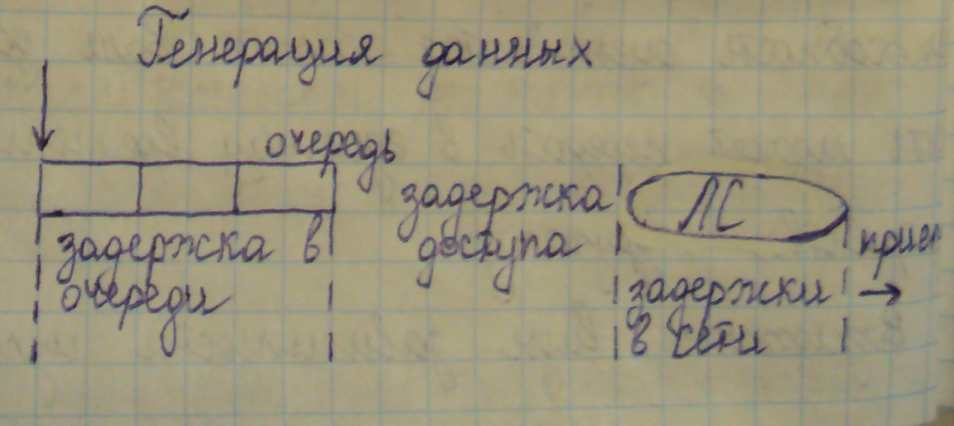 Генерация данных
очередь
задержка в
очереди
задержка
доступа
ЛС
задержки
в сети